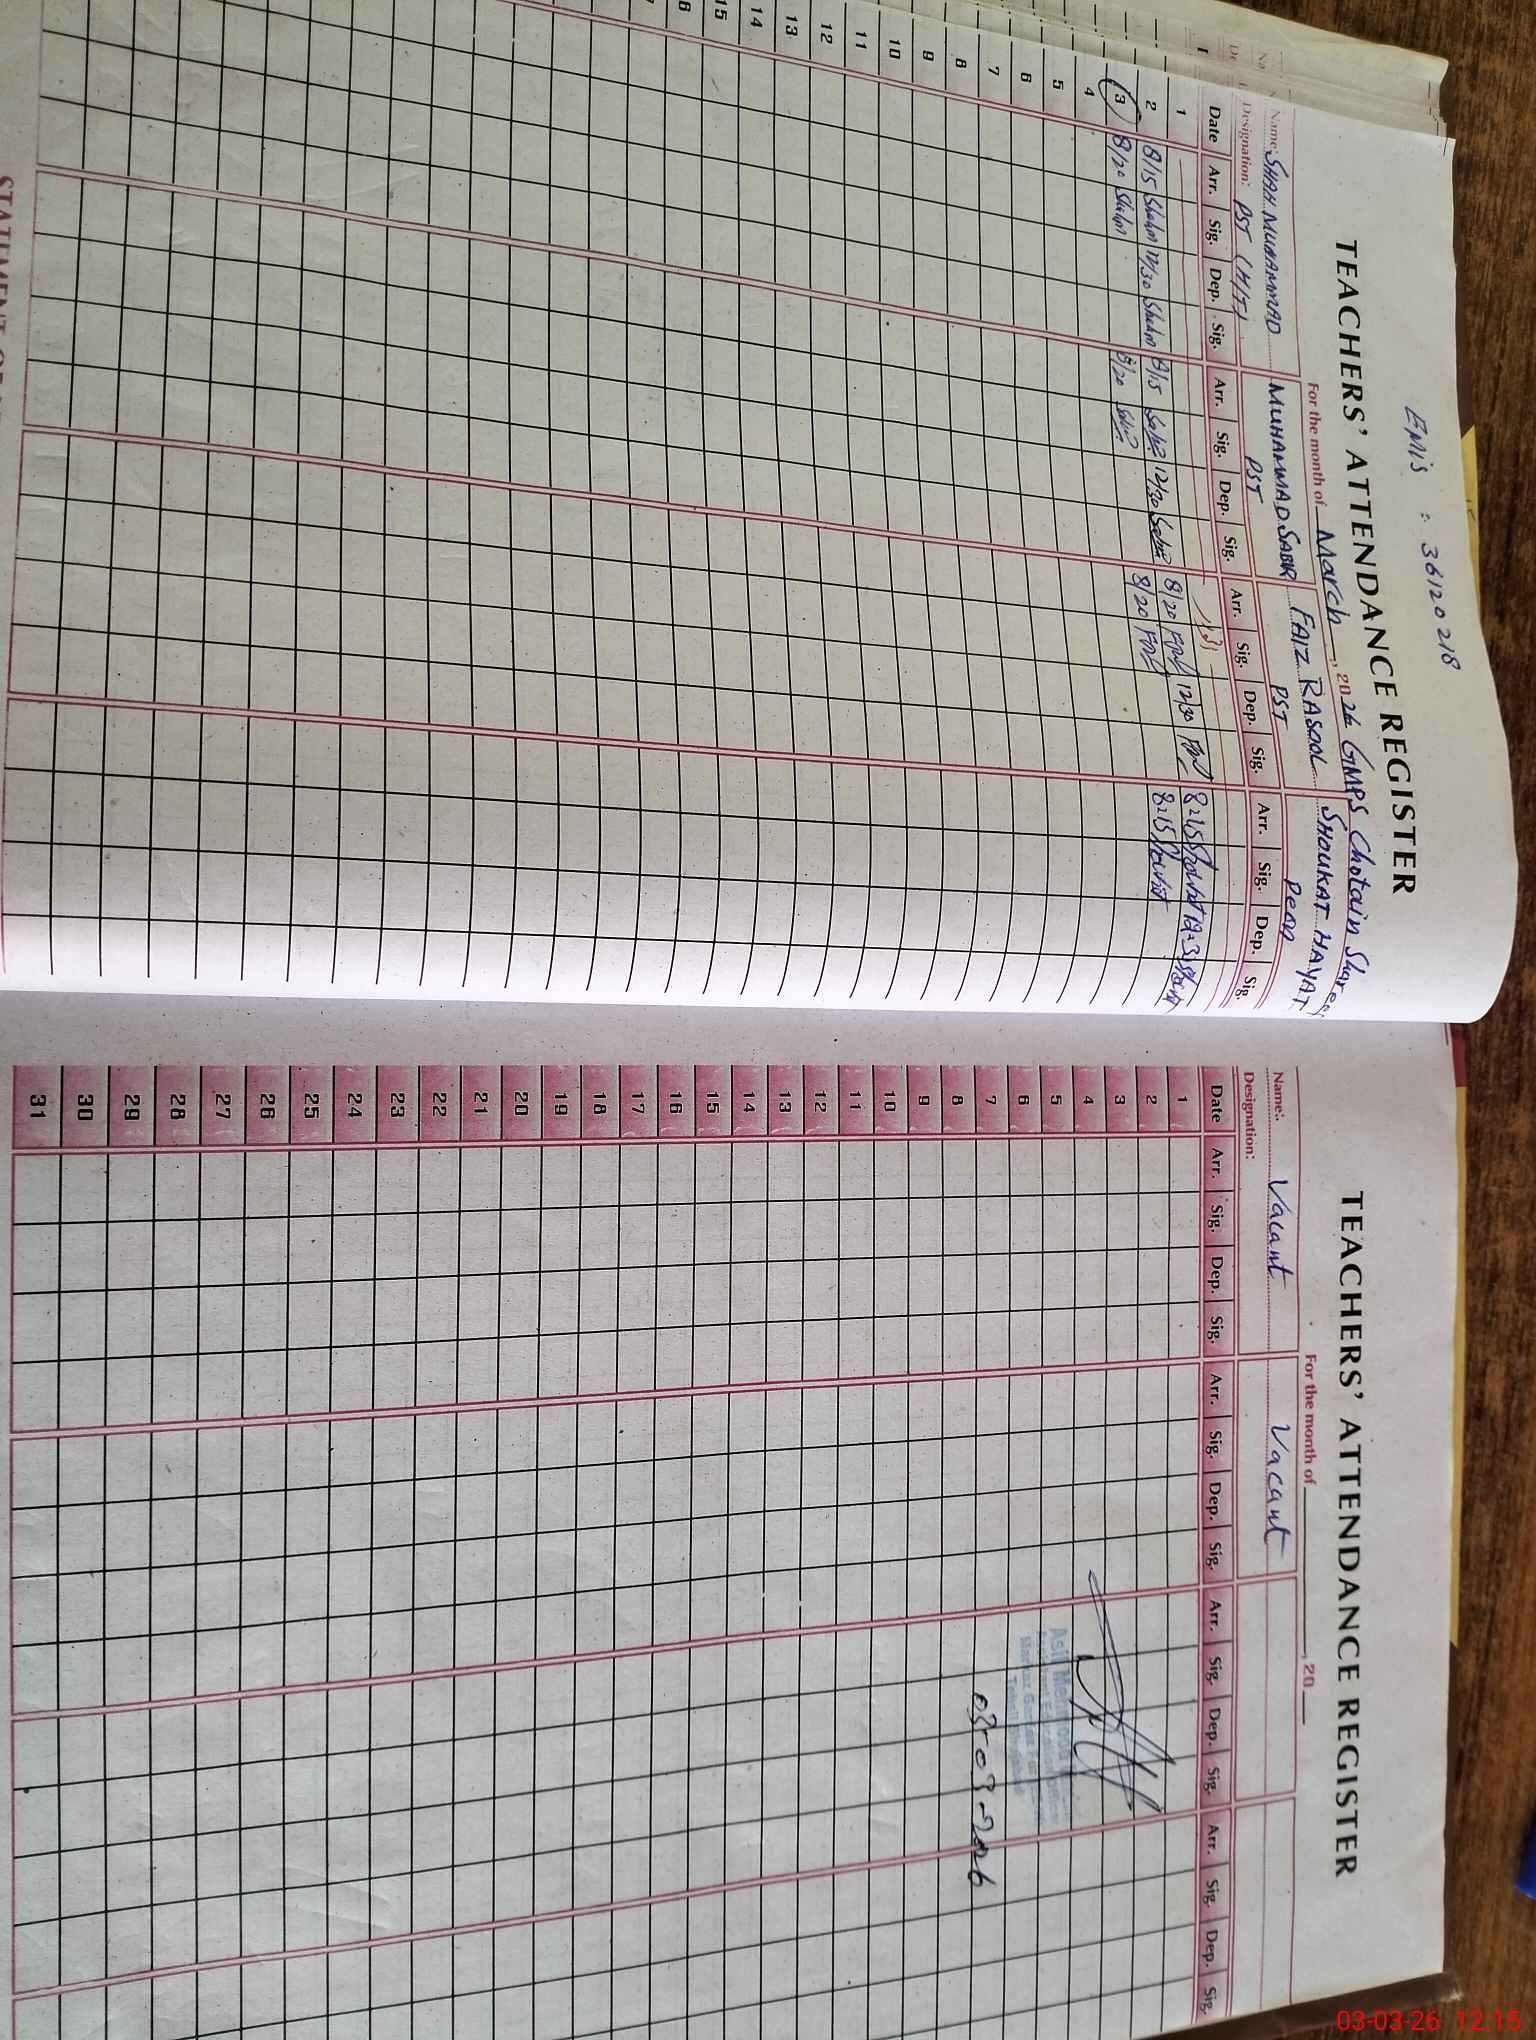 EMIS : 36120218
TEACHERS' ATTENDANCE REGISTER
For the month of March, 2026 GMPS Chotain Shareef
Name: SHAH MUHAMMAD MUHAMMAD SABIR FAIZ RASOOL SHOUKAT HAYAT
Designation: PST (H/T) PST PST Peon
Date Arr. Sig. Dep. Sig. Arr. Sig. Dep. Sig. Arr. Sig. Dep. Sig. Arr. Sig. Dep. Sig.
1
2 8/15 12/30 8/15 12/30 8/20 12/30 8:15
3 8/20 8/20 8/20 8:15
4
5
6
7
8
9
10
11
12
13
14
15
STATEMENT OF
TEACHERS' ATTENDANCE REGISTER
For the month of , 20
Name: Vacant Vacant
Designation:
Date Arr. Sig. Dep. Sig. Arr. Sig. Dep. Sig. Arr. Sig. Dep. Sig. Arr. Sig. Dep. Sig.
1
2
3
4
5
6
7
8
9
10
11
12
13
14
15
16
17
18
19
20
21
22
23
24
25
26
27
28
29
30
31
03-03-2026
03-03-26 12:15